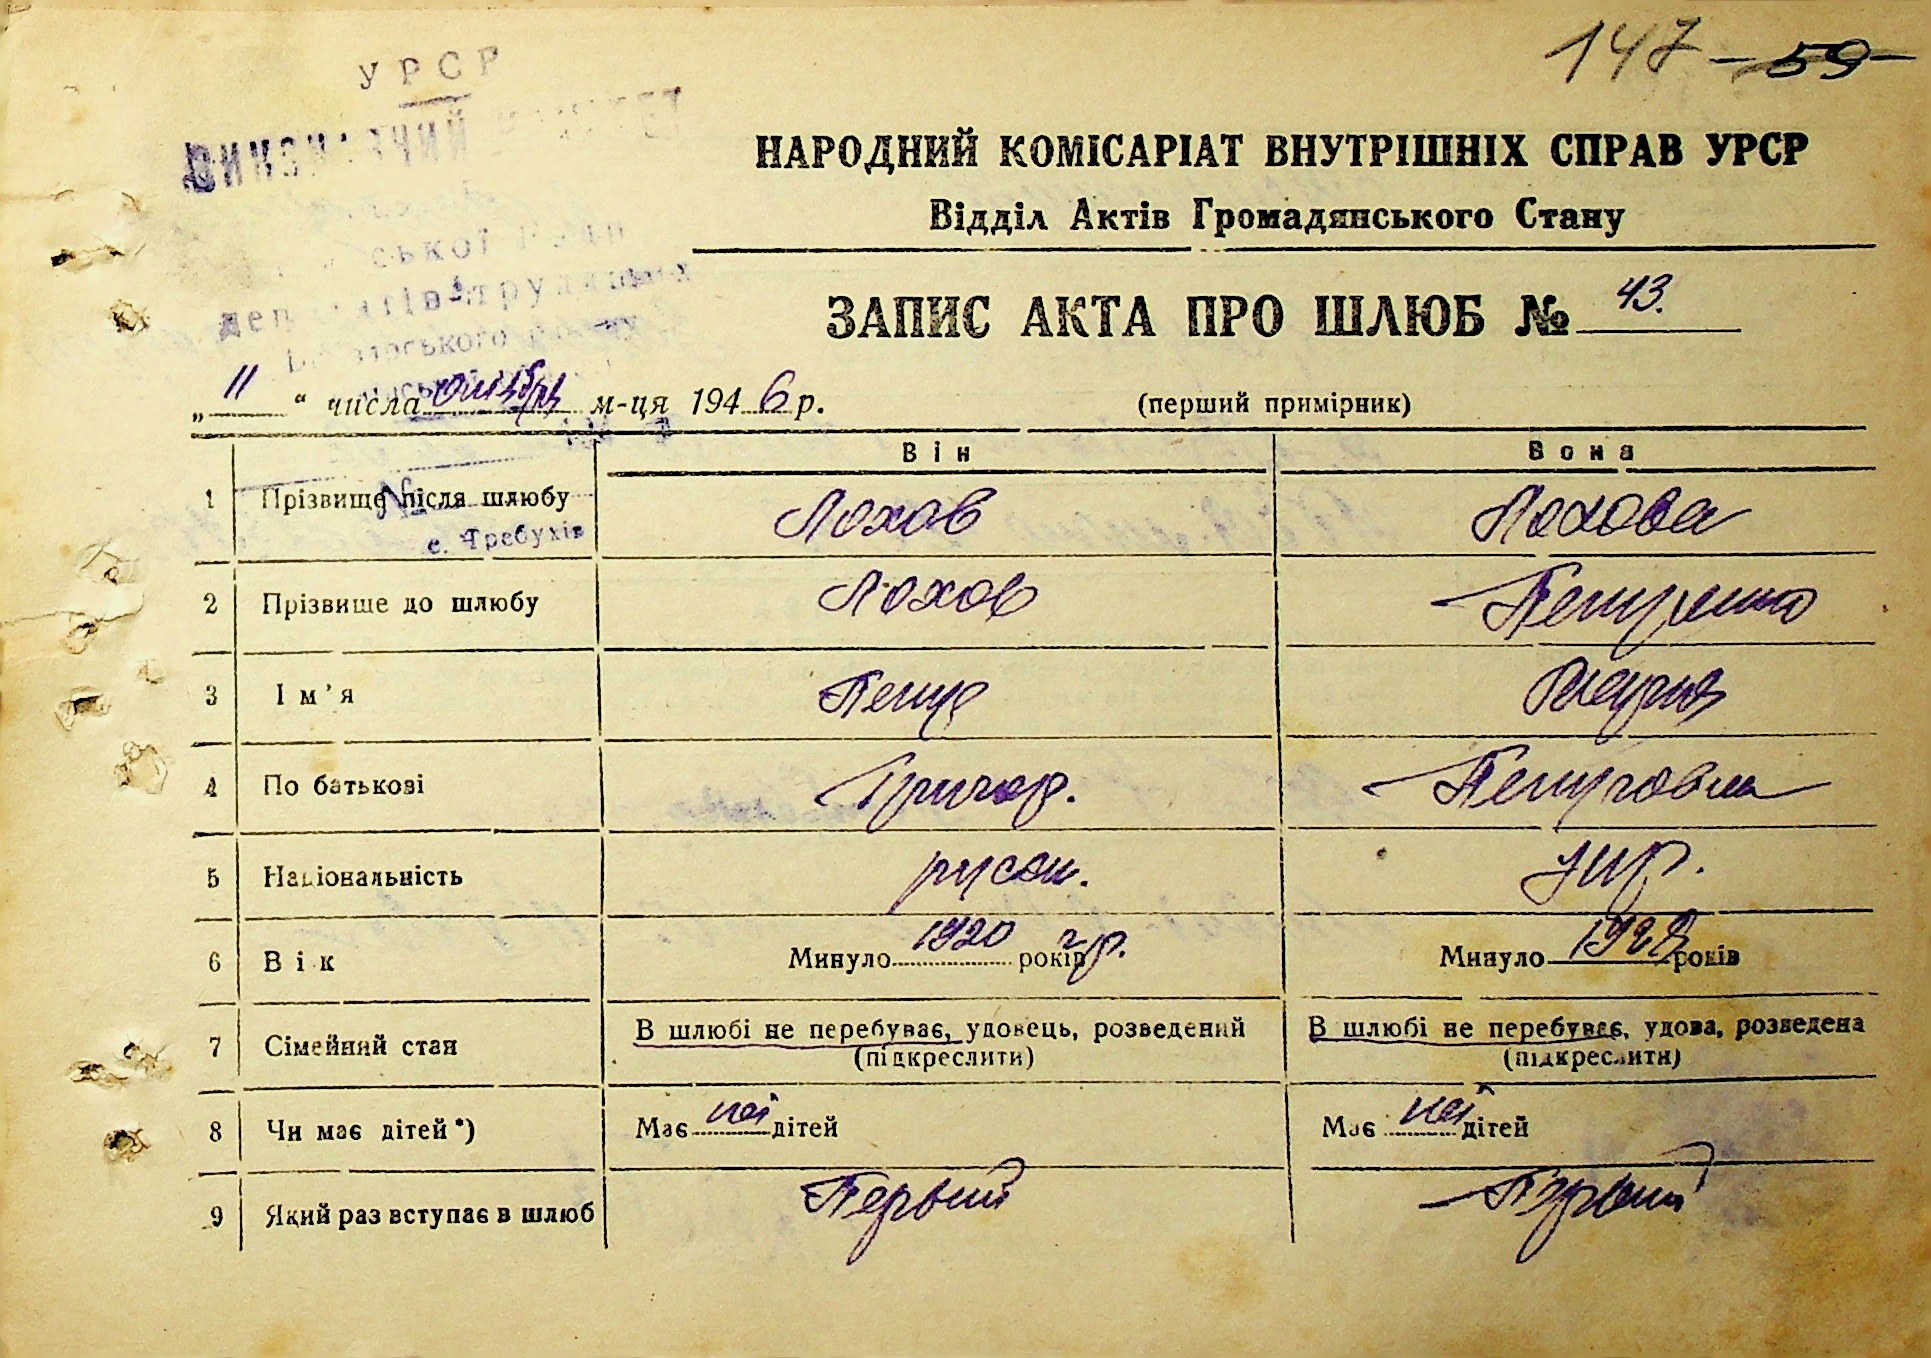 147 - 59 -
УРСР
НАРОДНИЙ КОМІСАРІАТ ВНУТРІШНІХ СПРАВ УРСР
Відділ Актів Громадянського Стану
ЗАПИС АКТА ПРО ШЛЮБ № 43.
„11“ числа октября м-ця 1946 р. (перший примірник)
Він Вона
1 Прізвище після шлюбу Лохов Лохова
с. Требухів
2 Прізвище до шлюбу Лохов Петренко
3 Ім'я Петр Мария
4 По батькові Григор. Петровна
5 Національність русск. укр.
6 Вік Минуло 1920 років г.р. Минуло років
7 Сімейний стан В шлюбі не перебуває, удовець, розведений В шлюбі не перебуває, удова, розведена
(підкреслити) (підкреслити)
8 Чи має дітей*) Має дітей Має дітей
9 Який раз вступає в шлюб Первый Первый